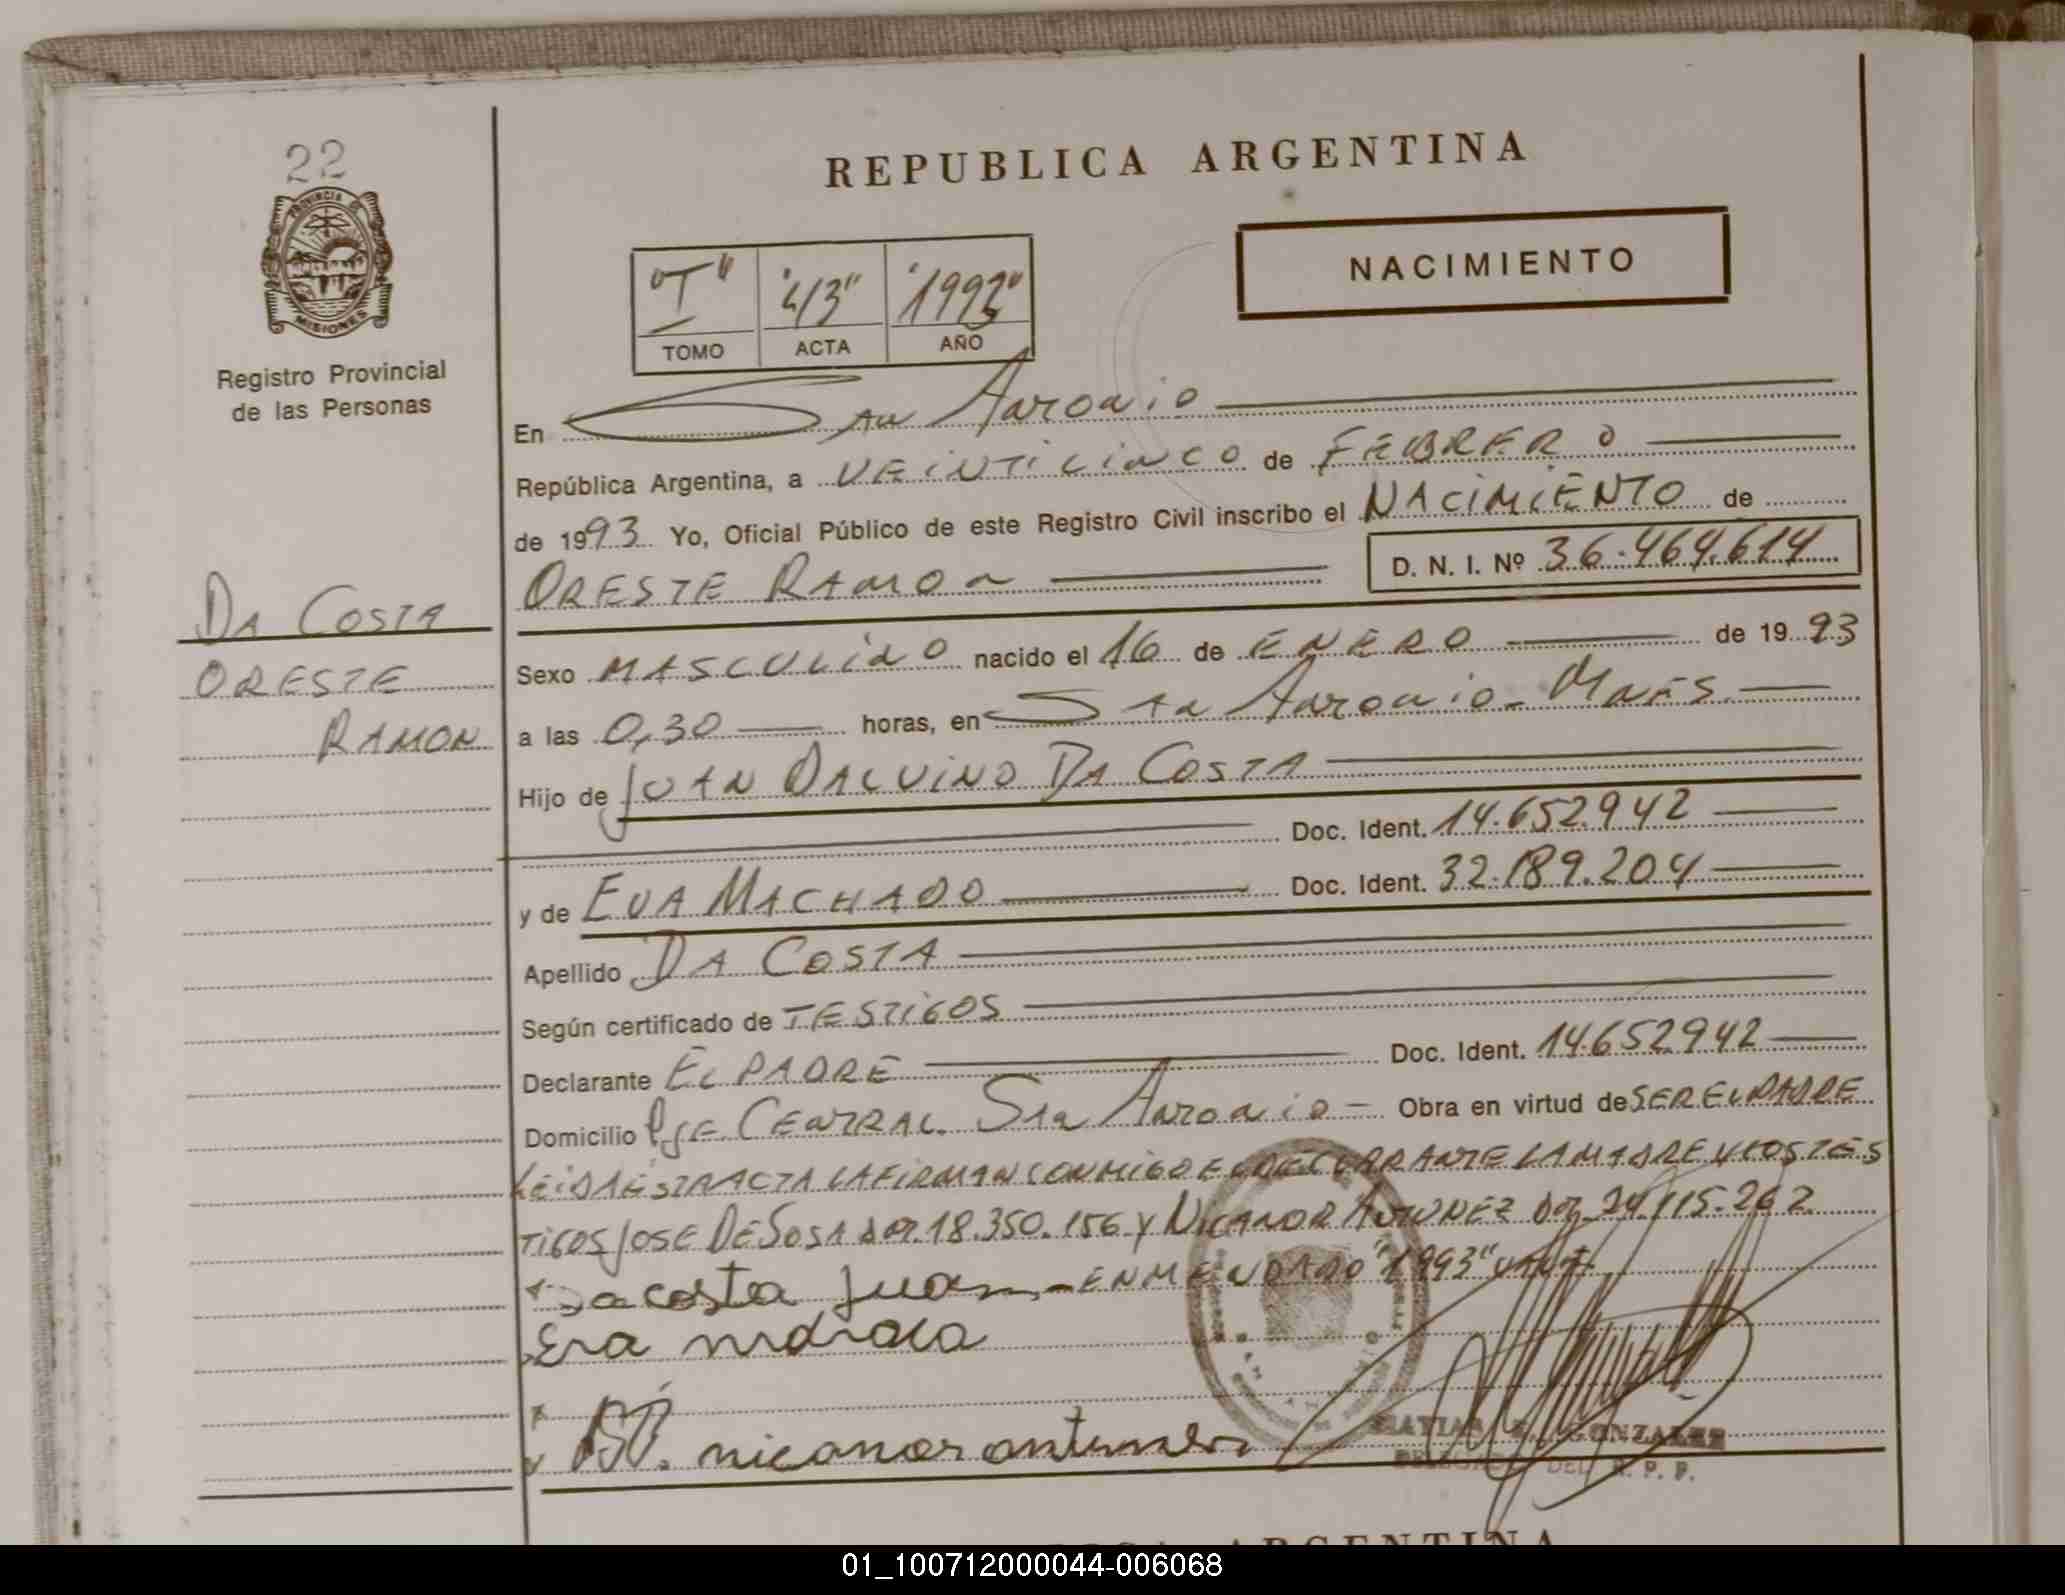 22
REPUBLICA ARGENTINA
PROVINCIA DE
MISIONES
Registro Provincial
de las Personas
"I" "43" "1993"
TOMO ACTA AÑO
NACIMIENTO
En San Antonio
República Argentina, a VEINTICINCO de FEBRERO
de 1993 Yo, Oficial Público de este Registro Civil inscribo el NACIMIENTO de
ORESTE RAMON D. N. I. Nº 36.464.614
DA COSTA
ORESTE
RAMON
Sexo MASCULINO nacido el 16 de ENERO de 1993
a las 0,30 horas, en San Antonio - Mnes.
Hijo de JUAN DALVINO DA COSTA
Doc. Ident. 14.652.942
y de EVA MACHADO Doc. Ident. 32.189.204
Apellido DA COSTA
Según certificado de TESTIGOS
Declarante EL PADRE Doc. Ident. 14.652.942
Domicilio Pje. CENTRAL. San Antonio - Obra en virtud de SER EL PADRE
LEIDA ESTA ACTA LA FIRMAN CONMIGO EL DECLARANTE LA MADRE Y LOS TES
TIGOS JOSE DE SOSA DNI. 18.350.156 Y NICANOR ANTUNEZ DNI. 24.115.262
Dacosta Juan - ENMENDADO "1993" VALE.
Eva
nicanor antunez
MATIAS E. GONZALEZ
DELEGADO DEL R. P. P.
ARGENTINA
01_100712000044-006068